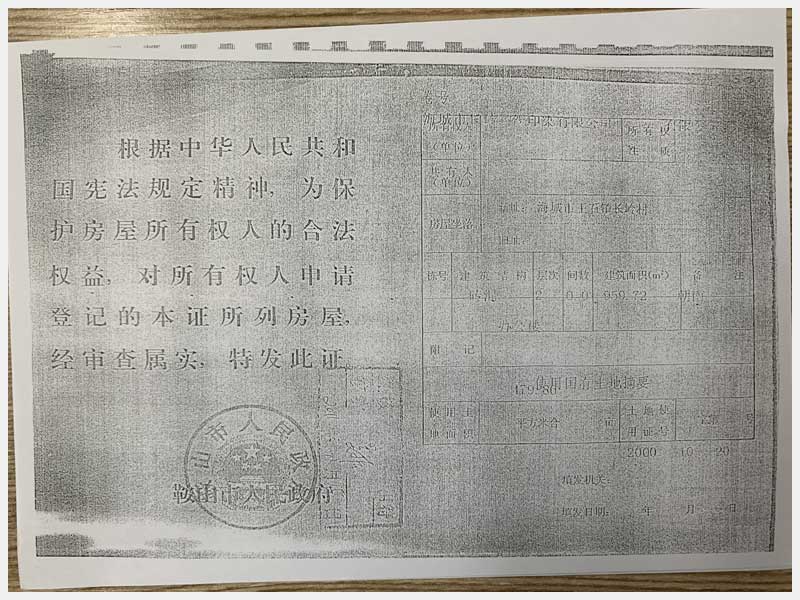 根据中华人民共和
国宪法规定精神,为保
护房屋所有权人的合法
权益,对所有权人申请
登记的本证所列房屋,
经审查属实,特发此证
山市人民政
鞍山市人民政府
海城市 印染有限公司
所有权人
(单位)
所有权
性质
共有人
(单位)
房屋坐落
海城市王石镇长岭村
栋号 建筑结构 层次 间数 建筑面积(m²) 备注
砖混 2 959.72
办公楼
附记
使用国有土地摘要
479.86
使用土
地面积
平方米合
土地使
用证号
号
2000 10 20
填发机关:
填发日期: 年 月 日